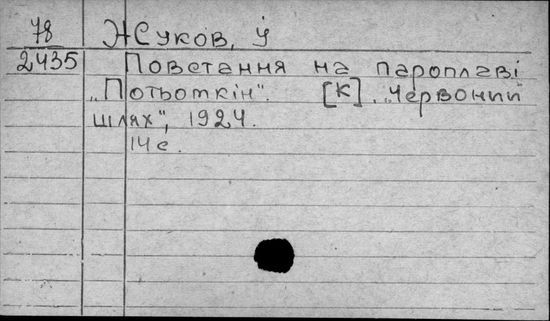 78 Жуков, Й
2435 Повстання на пароплаві
„Потьоткін". [К]. „Червоний
шлях", 1924.
14 с.